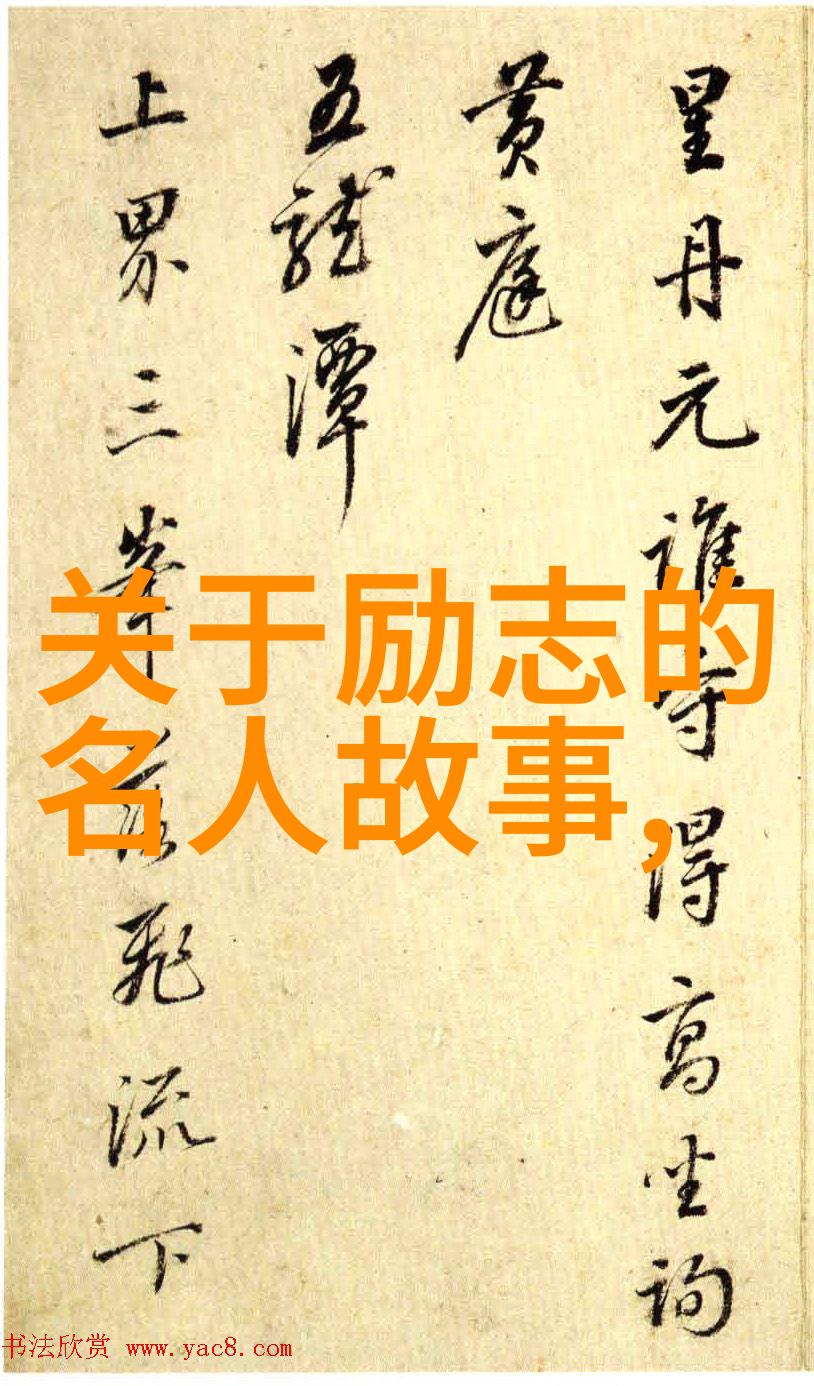 星丹元谁守得高坐询
黄庭
五龙潭
上界三峰
飛流下
关于励志的
名人故事,
书法欣赏 www.yac8.com